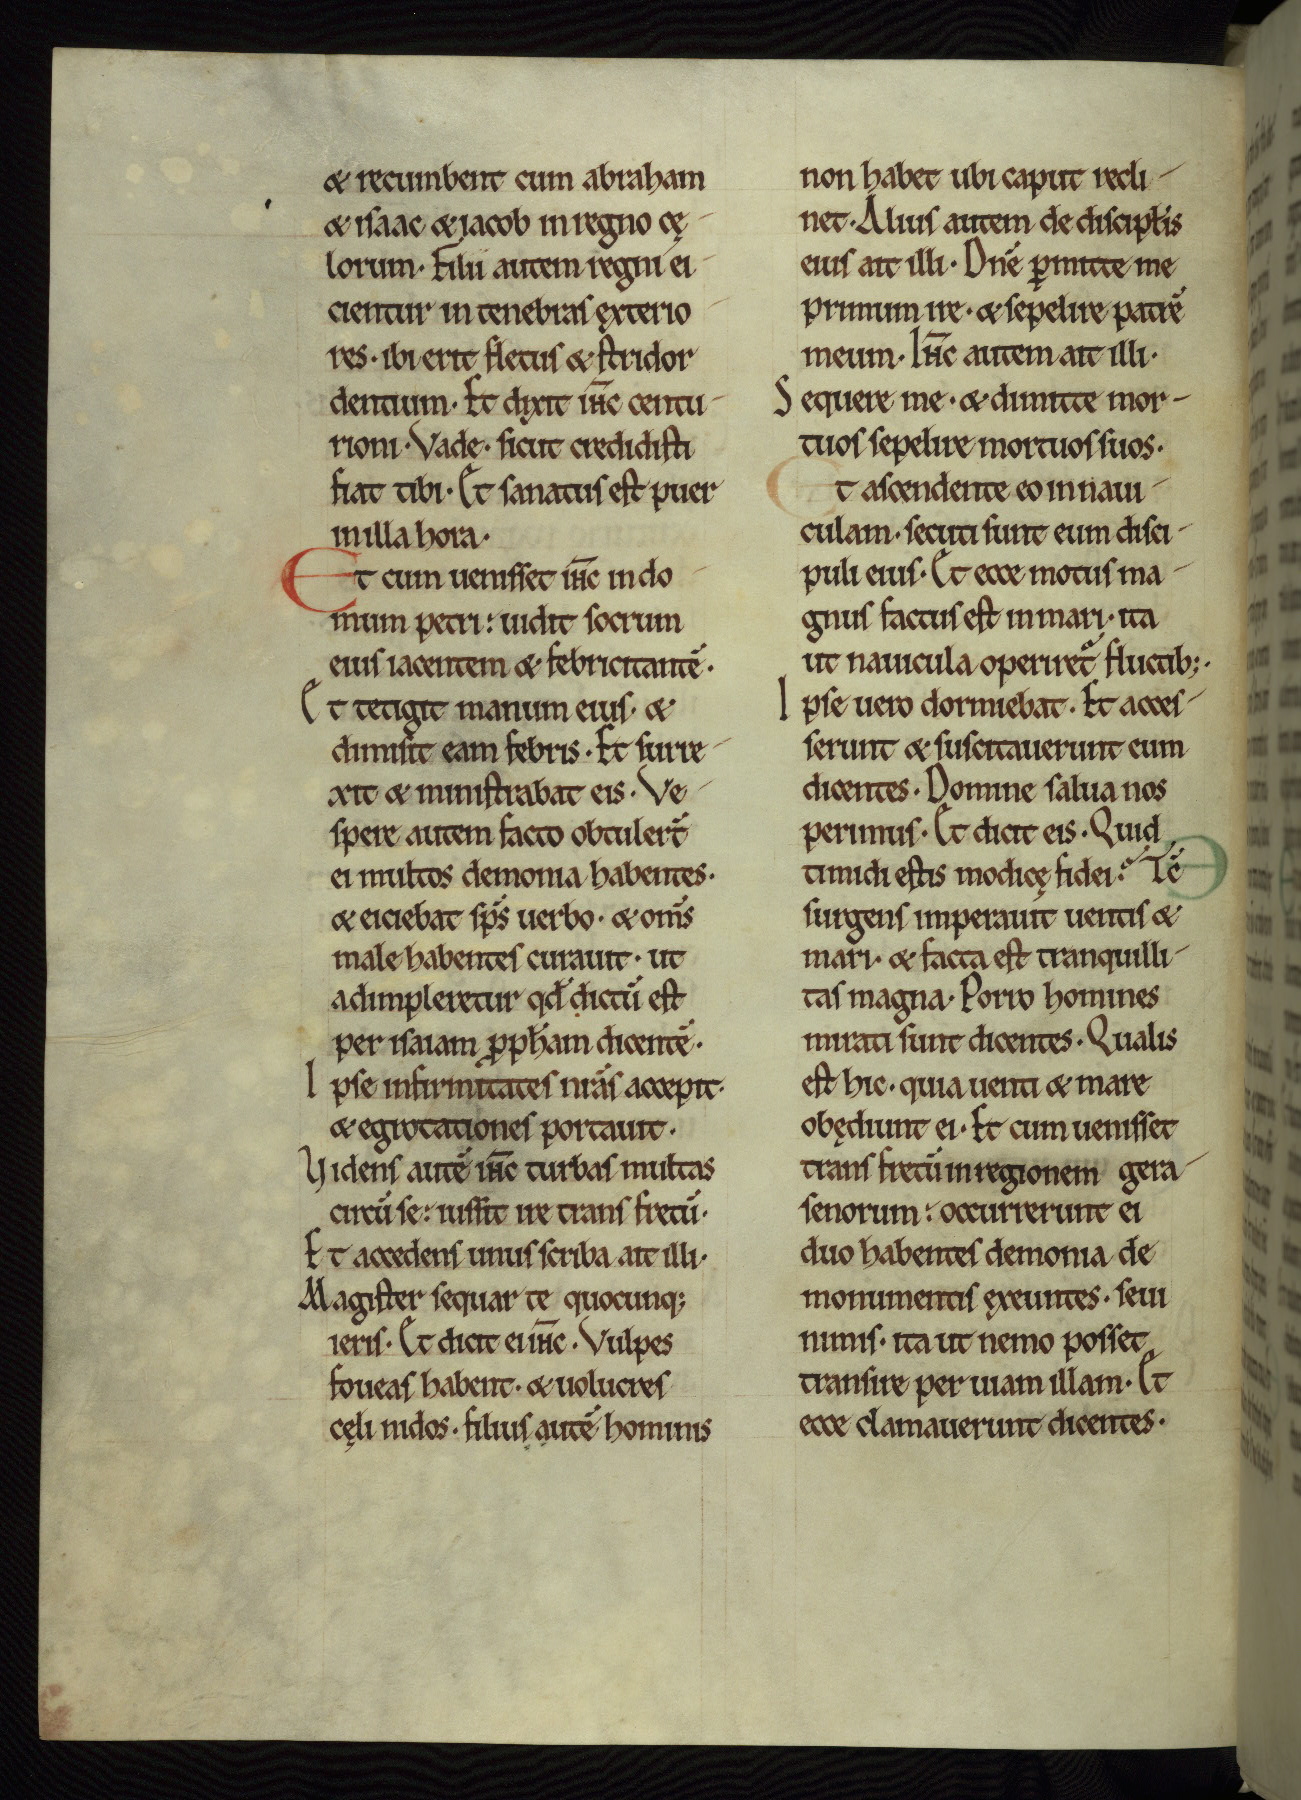 & recumbent cum abraham
& isaac & jacob in regno cę-
lorum· Filii autem regni ei-
cientur in tenebras ęxterio-
res· ibi erit fletus & stridor
dentium· Et dixit ih̅c centu-
rioni· Vade· sicut credidisti
fiat tibi· Et sanatus est puer
in illa hora·
Et cum uenisset ih̅c in do-
mum petri: uidit socrum
eius iacentem & febricitantē·
Et tetigit manum eius· &
dimisit eam febris· Et surre-
xit & ministrabat eis· Ve-
spere autem facto obtuler̅t
ei multos demonia habentes·
& eiciebat sp̅s uerbo· & om̅s
male habentes curauit· ut
adimpleretur qd̅ dictū est
per isaiam ꝓph̅am dicentē·
Ipse infirmitates nr̅as accepit·
& egrotationes portauit·
Uidens autē ih̅c turbas multas
circū se: iussit ire trans fretū·
Et accedens unus scriba ait illi·
Magister sequar te quocunq;
ieris· Et dicit ei ih̅c· Vulpes
foueas habent· & uolucres
cęli nidos· filius autē hominis
non habet ubi caput recli-
net· Alius autem de discipl̅is
eius ait illi· Dn̅e ꝑmitte me
primum ire· & sepelire patrē
meum· Ih̅c autem ait illi·
Sequere me· & dimitte mor-
tuos sepelire mortuos suos·
Et ascendente eo in naui-
culam· secuti sunt eum disci-
puli eius· Et ecce motus ma-
gnus factus est in mari· ita
ut nauicula operiret̅ fluctib;·
Ipse uero dormiebat· Et acces-
serunt & suscitauerunt eum
dicentes· Domine salua nos
perimus· Et dicit eis· Quid
timidi estis modicę fidei? Tc̅
surgens imperauit uentis &
mari· & facta est tranquilli-
tas magna· Porro homines
mirati sunt dicentes· Qualis
est hic· quia uenti & mare
obędiunt ei· Et cum uenisset
trans fretū in regionem gera-
senorum: occurrerunt ei
duo habentes demonia de
monumentis ęxeuntes· seui
nimis· ita ut nemo posset
transire per uiam illam· Et
ecce clamauerunt dicentes·